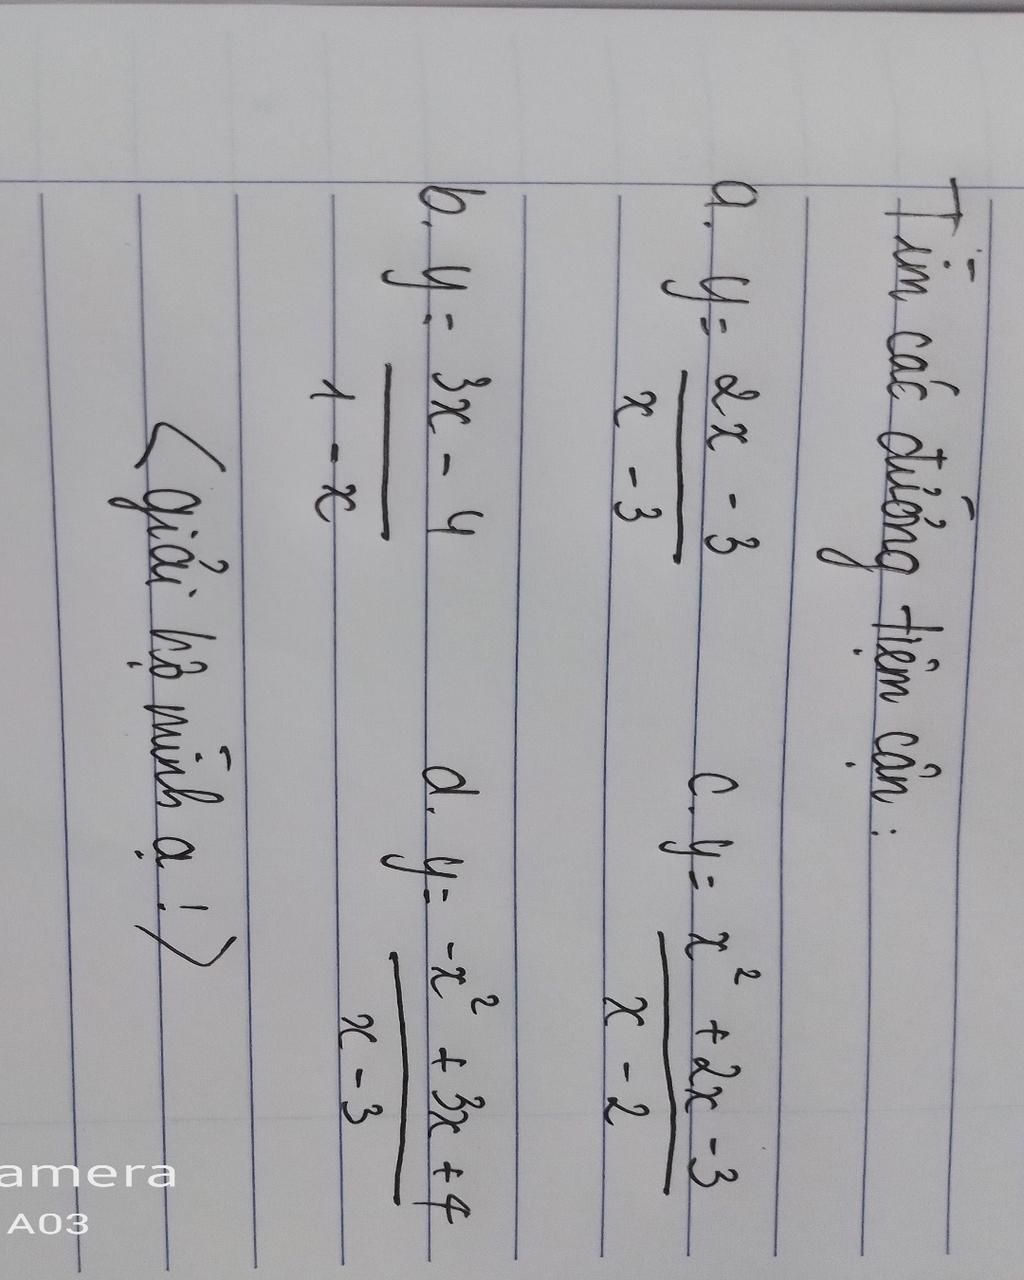 Tìm các đường tiệm cận:
a. y = 2x - 3
x - 3
c. y = x² + 2x - 3
x - 2
b. y = 3x - 4
1 - x
d. y = -x² + 3x + 4
x - 3
<giải hộ mình ạ!>
amera
A03